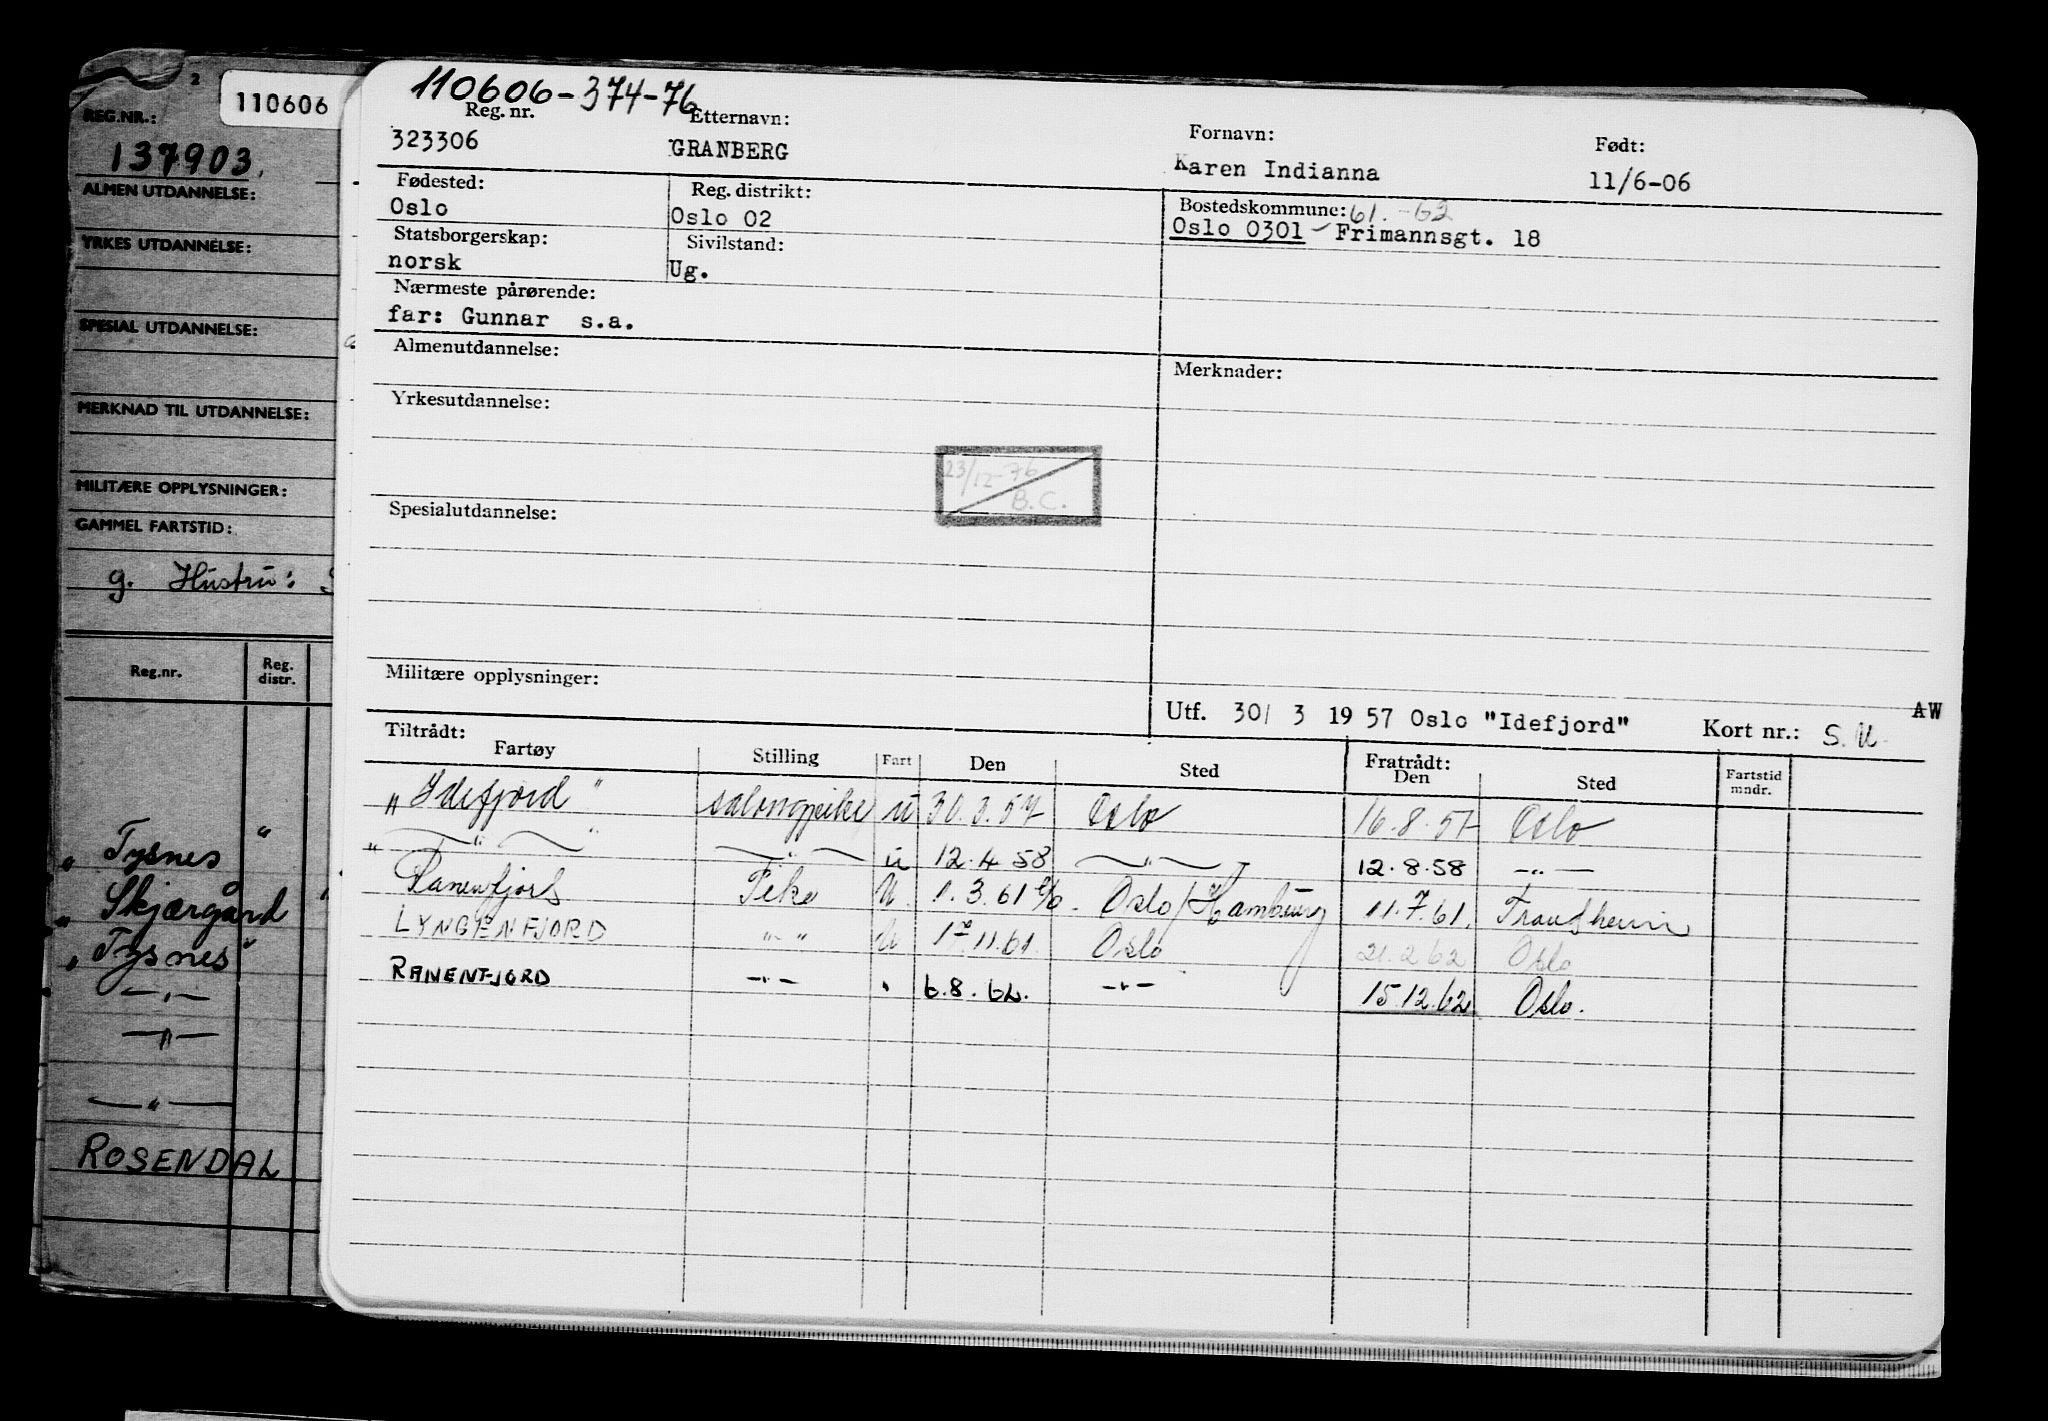 2
110606
REG.NR.:
137903.
ALMEN UTDANNELSE:
YRKES UTDANNELSE:
SPESIAL UTDANNELSE:
MERKNAD TIL UTDANNELSE:
MILITÆRE OPPLYSNINGER:
GAMMEL FARTSTID:
g. Hustru:
Reg.nr. Reg. distr.
" Tysnes "
" Skjærgård "
" Tysnes "
—"—
—"—
—"—
ROSENDAL
110606-374-76
Reg. nr. Etternavn: Fornavn: Født:
323306 GRANBERG Karen Indianna 11/6-06
Fødested: Reg. distrikt: Bostedskommune: 61.-62
Oslo Oslo 02 Oslo 0301 - Frimannsgt. 18
Statsborgerskap: Sivilstand:
norsk Ug.
Nærmeste pårørende:
far: Gunnar s.a.
Almenutdannelse: Merknader:
Yrkesutdannelse:
23/12-76
B.C.
Spesialutdannelse:
Militære opplysninger:
Utf. 30/ 3 19 57 Oslo "Idefjord" Kort nr.: S.U. AW
Tiltrådt: Fratrådt:
Fartøy Stilling Fart Den Sted Den Sted Fartstid mndr.
"Idefjord" salongpike u 30.3.57 Oslo 16.8.57 Oslo
" —"— " —"— u 12.4.58 —"— 12.8.58 —"—
Ranenfjord Pike U. 1.3.61 Oslo/Hamburg 11.7.61. Trondheim
LYNGENFJORD -"- U 11.61. Oslo 21.2.62 Oslo
RANENFJORD —"— " 6.8.62. —"— 15.12.62 Oslo.